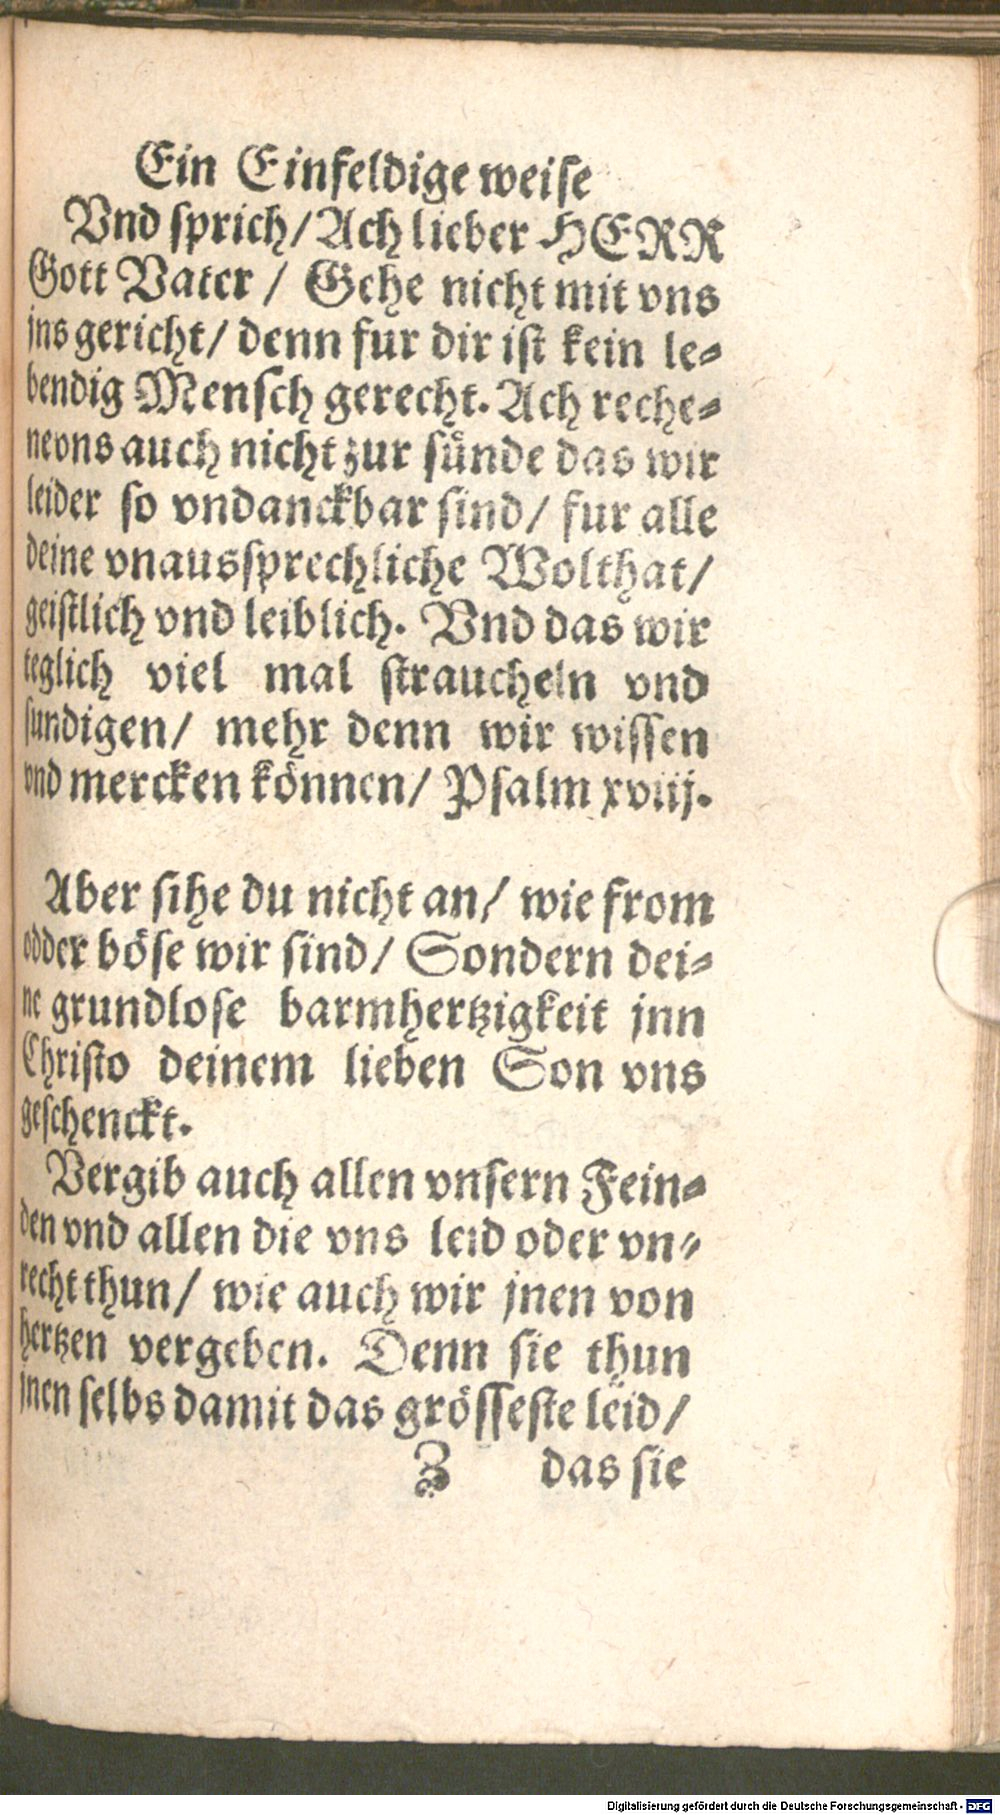 Ein Einfeldige weise
Vnd sprich/ Ach lieber HERR
Gott Vater / Gehe nicht mit vns
jns gericht/ denn fur dir ist kein le-
bendig Mensch gerecht. Ach reche-
ne vns auch nicht zur sünde das wir
leider so vndanckbar sind/ fur alle
deine vnaussprechliche Wolthat/
geistlich vnd leiblich. Vnd das wir
teglich viel mal straucheln vnd
sundigen/ mehr denn wir wissen
vnd mercken können/ Psalm xviij.
Aber sihe du nicht an/ wie from
odder böse wir sind/ Sondern dei-
ne grundlose barmhertzigkeit jnn
Christo deinem lieben Son vns
geschenckt.
Vergib auch allen vnsern Fein-
den vnd allen die vns leid oder vn-
recht thun/ wie auch wir jnen von
hertzen vergeben. Denn sie thun
jnen selbs damit das grösseste leid/
Z das sie
Digitalisierung gefördert durch die Deutsche Forschungsgemeinschaft - DFG